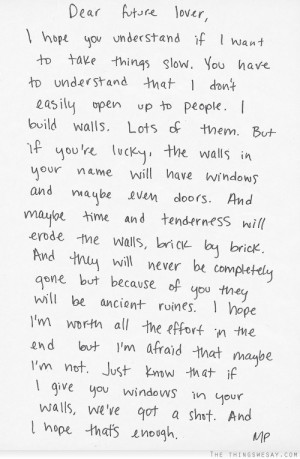 Dear future lover,
I hope you understand if I want
to take things slow. You have
to understand that I don't
easily open up to people. I
build walls. Lots of them. But
if you're lucky, the walls in
your name will have windows
and maybe even doors. And
maybe time and tenderness will
erode the walls, brick by brick.
And they will never be completely
gone but because of you they
will be ancient ruines. I hope
I'm worth all the effort in the
end but I'm afraid that maybe
I'm not. Just know that if
I give you windows in your
walls, we've got a shot. And
I hope that's enough. MP
THETHINGSWESAY.COM